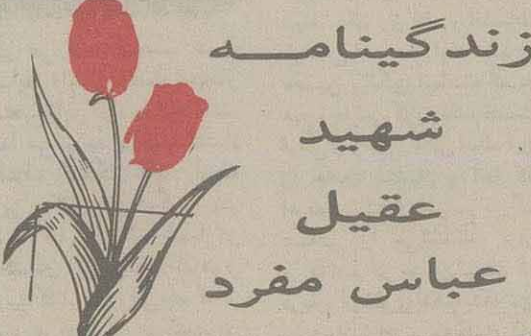 زندگینامه
شهید
عقیل
عباس مفرد